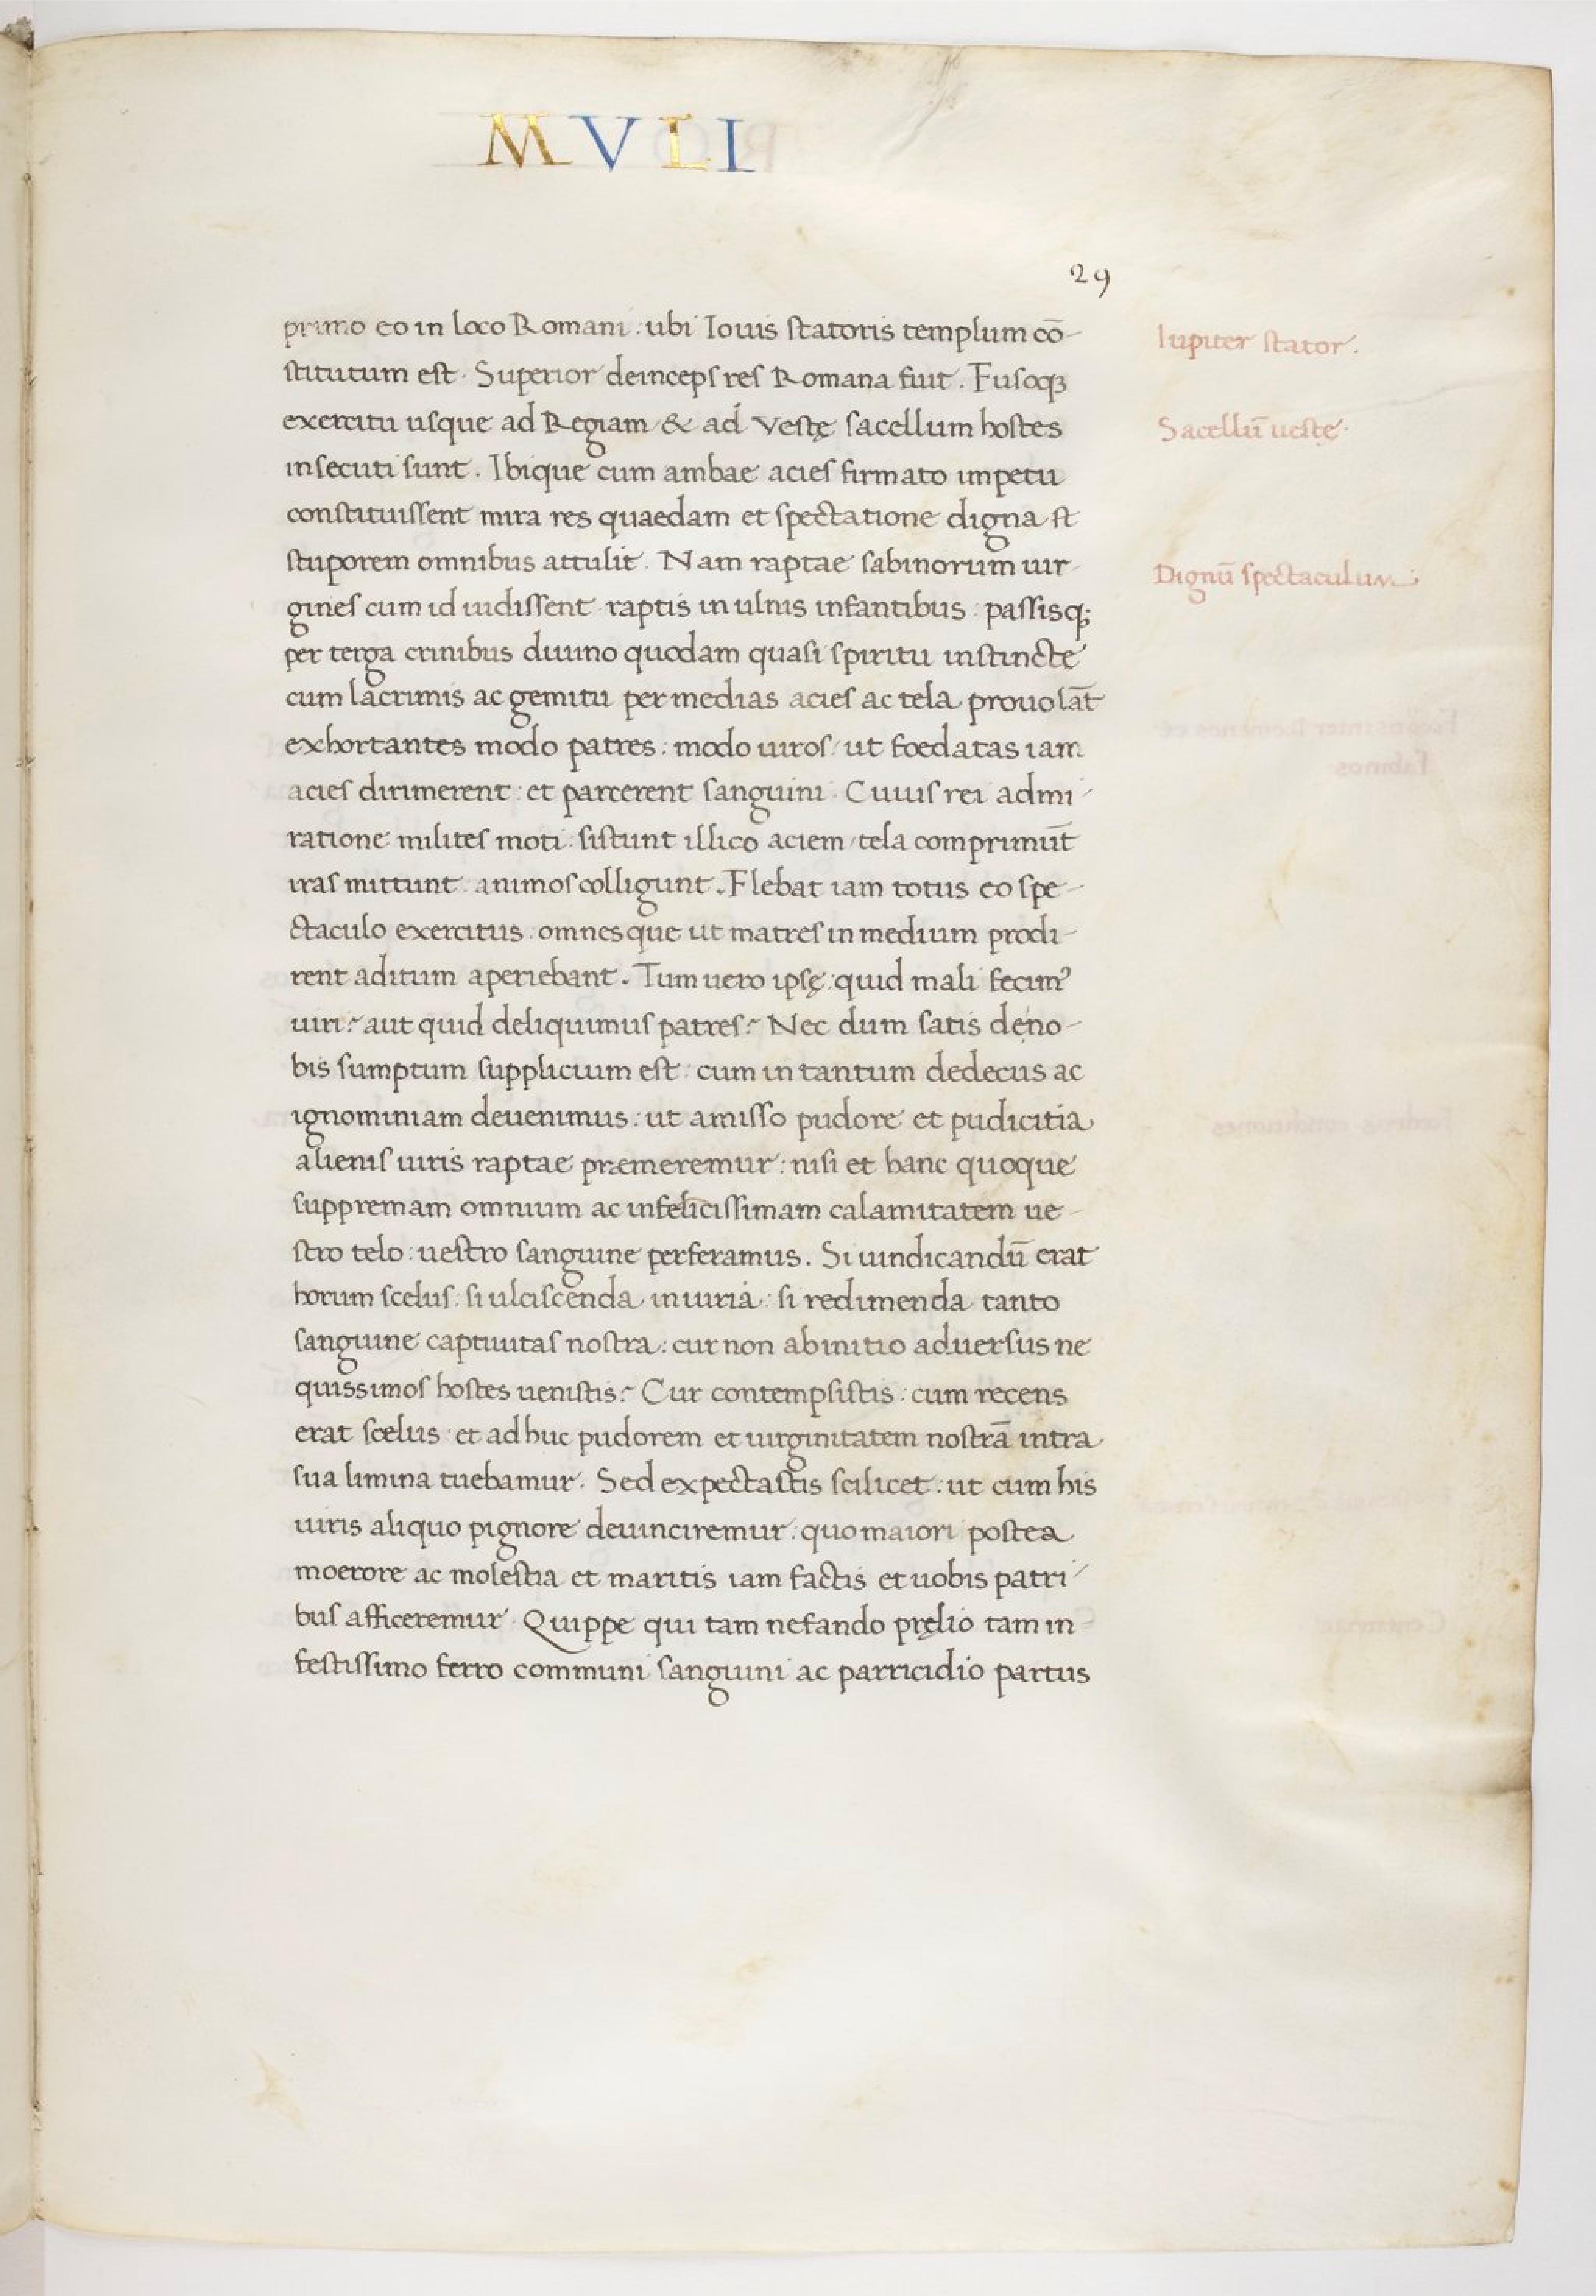 MVLI
29
primo eo in loco Romani: ubi Iouis statoris templum cō-
Iupiter stator.
stitutum est. Superior deinceps res Romana fuit. Fusoqꝫ
exercitu usque ad Regiam & ad Vestę sacellum hostes
Sacellū uestę.
insecuti sunt. Ibique cum ambae acies firmato impetu
constituissent mira res quaedam et spectatione digna st
stuporem omnibus attulit. Nam raptae sabinorum uir-
Dignū spectaculum:
gines cum id uidissent raptis in ulnis infantibus: passisqꝫ
per terga crinibus diuino quodam quasi spiritu instincte
cum lacrimis ac gemitu per medias acies ac tela prouolāt
exhortantes modo patres: modo uiros/ ut foedatas iam
acies dirimerent: et parcerent sanguini. Cuius rei admi-
ratione milites moti: sistunt illico aciem/ tela comprimūt
iras mittunt: animos colligunt. Flebat iam totus eo spe-
ctaculo exercitus: omnesque ut matres in medium prodi-
rent aditum aperiebant. Tum uero ipsę: quid mali fecimꝰ
uiri? aut quid deliquimus patres? Nec dum satis de no-
bis sumptum supplicium est: cum in tantum dedecus ac
ignominiam deuenimus: ut amisso pudore et pudicitia
alienis uiris raptae præmeremur: nisi et hanc quoque
suppremam omnium ac infelicissimam calamitatem ue-
stro telo: uestro sanguine perferamus. Si uindicandū erat
horum scelus: si ulciscenda iniuria: si redimenda tanto
sanguine captiuitas nostra: cur non ab initio aduersus ne
quissimos hostes uenistis? Cur contempsistis: cum recens
erat scelus: et adhuc pudorem et uirginitatem nostrā intra
sua limina tuebamur. Sed expectastis scilicet: ut cum his
uiris aliquo pignore deuinciremur: quo maiori postea
moerore ac molestia et maritis iam factis et uobis patri-
bus afficeremur. Quippe qui tam nefando pręlio tam in-
festissimo ferro communi sanguini ac parricidio partus